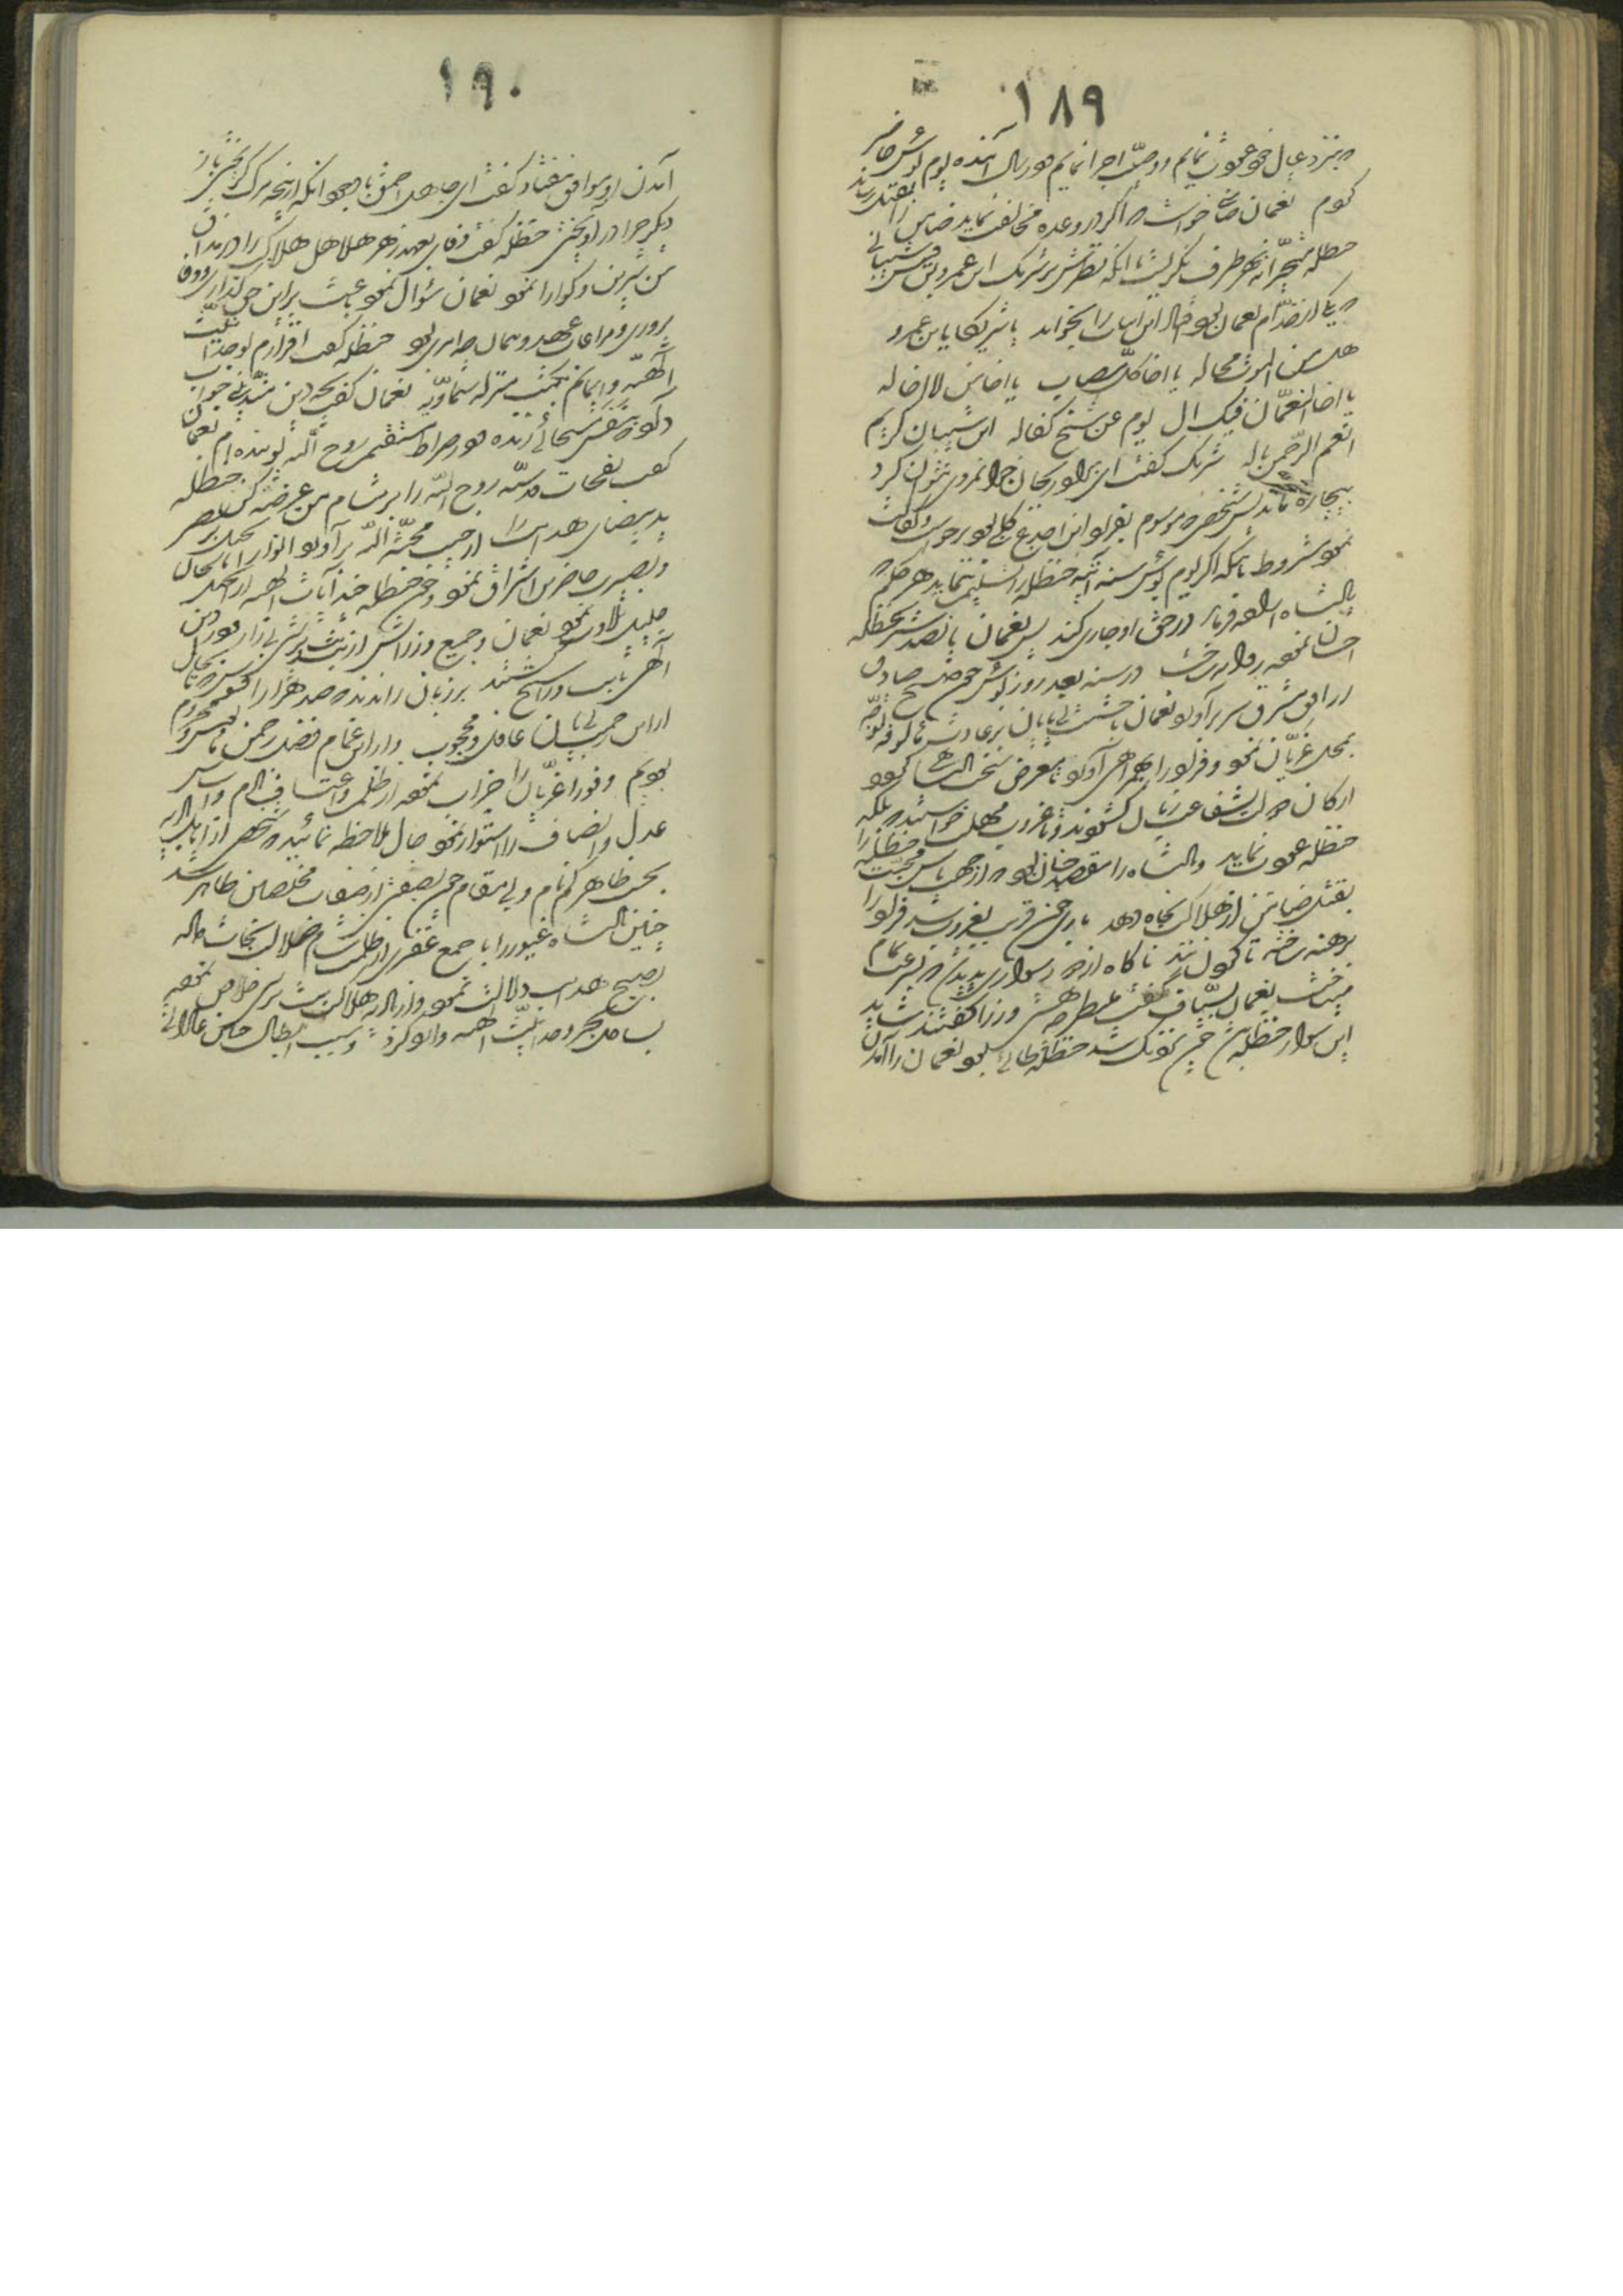 ١٨٩
که بنزد عیال خود عودت نمایم و وصیت اجرا نمایم و در سال آینده یوم بؤس حاضر
کردم نعمان ضامنی خواست که اگر در وعده مخالفت نماید ضامن را بقتل رساند
حنظله متحیرانه بهر طرف نگریست تا آنکه نظرش بر شریک ابن عمرو بن قیس شیبانی
که یکی از خدام نعمان بود افتاد این ابیات را بخواند یا شریکا یا بن عمرو
هل من الموت محاله یا اخا کل مصاب یا اخا من لا اخا له
یا اخا النعمان فیک ال یوم عن شیخ کفاله ابن شیبان کریم
انعم الرحمن باله شریک گفت ای برادر بجان جوانمردی نتوان کرد
بیچاره ماند پس شخصی موسوم بقراد ابن اجدع کلبی بود برخاست و کفالت
نمود مشروط بآنکه اگر یوم بؤس سنه آتیه حنظله را تسلیم ننماید هر حکم که
پادشاه اراده فرماید در حق او جاری کند پس نعمان پانصد شتر بحنظله
احسان نموده روانه ساخت در سنه بعد روز بؤس چون صبح صادق
از افق مشرق سر برآورد نعمان با حشمت بی‌پایان بر عادت مألوفه توجه
بمحل غریّان نمود و قراد را همراه آورد تا معرض سخط پادشاه گردد
ارکان دولت شفاعت زبان گشودند و تا غروب مهلت خواستند که بلکه
حنظله عودت نماید و پادشاه را مقصد چنان بود که از جهت پاس محبت حنظله را
بقتل ضامن از هلاک نجاة دهد باری چون قریب بغروب شد قراد را
برهنه ساختند تا گردن زنند ناگاه از دور سواری پدید شد که بسرعت تمام
میتاخت نعمان بسیاف گفت منتظر چه هستی وزرا گفتند شاید
این سوار حنظله باشد چون نزدیک شد حنظله طائی بود نعمان را آمدن
١٩٠
آمدن او موافق نیفتاد گفت ای جاهل احمق با وجود آنکه از پنجه مرگ گریختی بار
دیگر چرا در آویختی حنظله گفت وفای بعهد زهر هلاهل هلاک را در مذاق
من شیرین و گوارا نمود نعمان سؤال نمود باعث بر این حق گذاری و وفا
پروری و مراعات عهد و پیمان چه امری بود حنظله گفت اقرارم بوحدانیت
الهیه و ایمانم بکتب منزله سماویه نعمان گفت بچه دین متدینی جواب
داد که بنفس مسیحائی زنده و در صراط مستقیم روح الله پوینده‌ام نعمان
گفت نفحات قدسیه روح الله را بر مشام من عرضه کن حنظله
ید بیضای هدایت را از جیب محبة الله برآورد و انوار انجیل بر بصر
و بصیرت حاضرین اشراق نمود و چون حنظله چند آیات الهیه از انجیل بالحان
جلیل تلاوت نمود نعمان و جمیع وزراش از بت و بت‌پرستی بیزار و در دین
الهی ثابت و راسخ گشتند بر زبان راندند که صد هزار افسوس که تا بحال
از این رحمت بی‌پایان غافل و محجوب و از این غمام فضل رحمن مأیوس و محروم
بودیم و فورا غریّان را خراب نموده از ظلم و اعتساف نادم و اساس
عدل و انصاف را استوار نمود حال ملاحظه نمائید که شخصی از اهل بادیه
بحسب ظاهر گمنام و بی مقام چون بصفتی از صفات مخلصین ظاهر شد
چنین پادشاه غیور را با جمع غفیری از ظلمت شام ضلالت نجات داده
بصبح هدایت دلالت نمود و از بادیه هلاک بت پرستی خلاص نموده
بساحل بحر وحدانیت الهیه وارد کرد و سبب ابطال چنین عاداتی